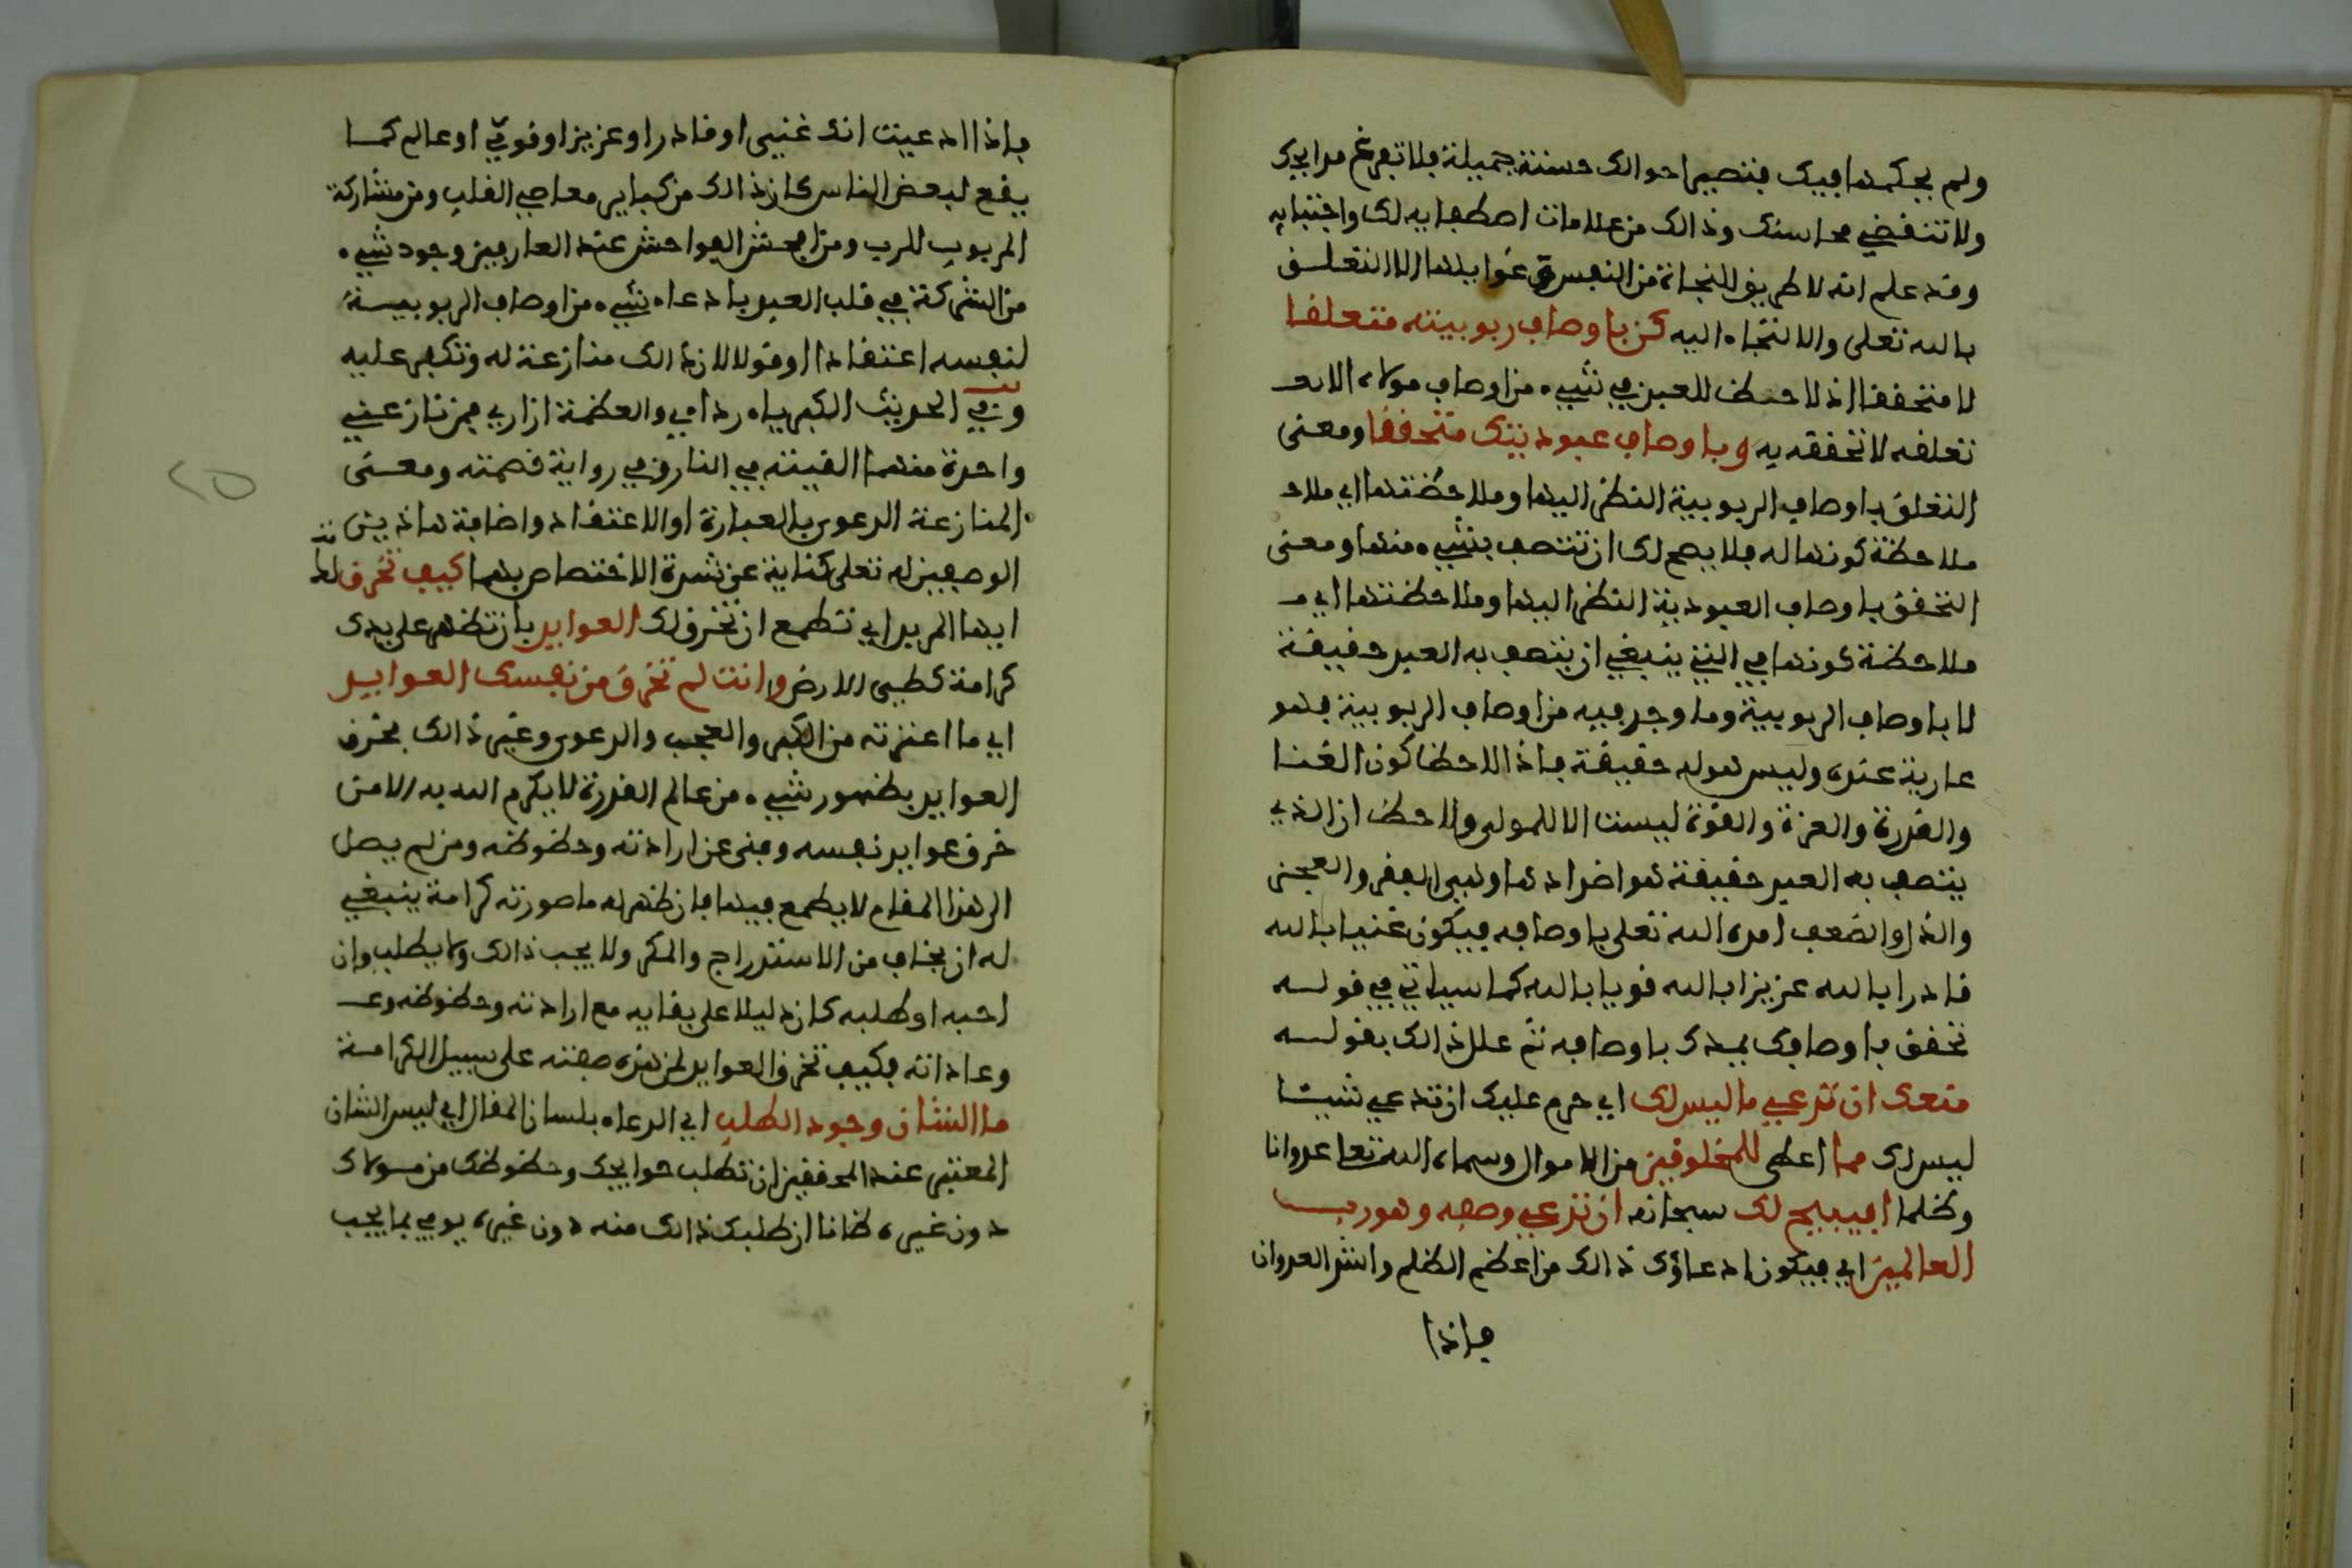 ولم يحكمها فيك فتصير احوالك حسنة جميلة فلا تفرغ مدايحك
ولا تنقضي محاسنك وذالك من علامات اصطفايه لك واجتبايه
وقد علم انه لا طريق للنجاة من النفس وعوايدها الا التعلق
بالله تعلى والالتجاء اليه كن باوصاف ربوبيته متعلقا
لا متحققا اذ لا حظ للعبد في شيء من اوصاف مولاه الا
تعلقه لا تحققه به وباوصاف عبوديتك متحققا ومعنى
التعلق باوصاف الربوبية النظر اليها وملاحظتها اي ملاحـ
ملاحظة كونها له فلا يصح لك ان تتصف بشيء منها ومعنى
التحقق باوصاف العبودية النظر اليها وملاحظتها اي مـ
ملاحظة كونها هي التي ينبغي ان يتصف به العبد حقيقة
لا باوصاف الربوبية وما وجد فيه من اوصاف الربوبية فهو
عارية عنده وليس هو له حقيقة فاذا لاحظ كون الغنا
والقدرة والعزة والقوة ليست الا للمولى ولاحظ ان الذي
يتصف به العبد حقيقة هو اضدادها وهي الفقر والعجز
والذل والضعف امده الله تعلى باوصافه فيكون غنيا بالله
قادرا بالله عزيزا بالله قويا بالله كما سياتي في قوله
تحقق باوصافك يمدك باوصافه ثم علل ذالك بقوله
منعك ان تدعي ما ليس لك اي حرم عليك ان تدعي شيئا
ليس لك مما اعطى للمخلوقين من الاموال وسماه الله تعلى عدوانا
وظلما افيبيح لك سبحانه ان تدعي وصفه وهو رب
العالمين اي فيكون ادعاؤك ذالك من اعظم الظلم واشد العدوان
فاذا
فاذا ادعيت انك غني او قادر او عزيز او قوي او عالم كما
يقع لبعض الناس كان ذالك من كباير معاصي القلب ومن مشاركة
المربوب للرب ومن افحش الفواحش عند العارفين وجود شيء
من الشركة في قلب العبد بادعاء شيء من اوصاف الربوبية
لنفسه اعتقادا او قولا لان ذالك منازعة له وتكبر عليه
وفي الحديث الكبرياء ردايي والعظمة ازاري فمن نازعني
واحدة منهما القيته في النار وفي رواية قصمته ومعنى
المنازعة الدعوى بالعبارة او الاعتقاد واضافة هاذين
الوصفين له تعلى كناية عن شدة الاختصاص بهما كيف تخرق لك
ايها المريد اي تطمع ان تخرق لك العوايد بان تظهر على يدك
كرامة كطي الارض وانت لم تخرق من نفسك العوايد
اي ما اعتدته من الكبر والعجب والدعوى وغير ذالك فخرق
العوايد بظهور شيء من عالم القدرة لا يكرم الله به الا من
خرق عوايد نفسه وفنى عن ارادته وحظوظه ومن لم يصل
الى هذا المقام لا يطمع فيها فان ظهر له ما صورته كرامة ينبغي
له ان يخاف من الاستدراج والمكر ولا يحب ذالك ولا يطلبه وان
احبه او طلبه كان دليلا على بقايه مع ارادته وحظوظه وعـ
وعاداته فكيف تخرق العوايد لمن هذه صفته على سبيل الكرامة
ما الشان وجود الطلب اي الدعاء بلسان المقال اي ليس الشان
المعتبر عند المحققين ان تطلب حوايجك وحظوظك من مولاك
دون غيره ظانا ان طلبك ذالك منه دون غيره يوفي بما يجب
٢٥